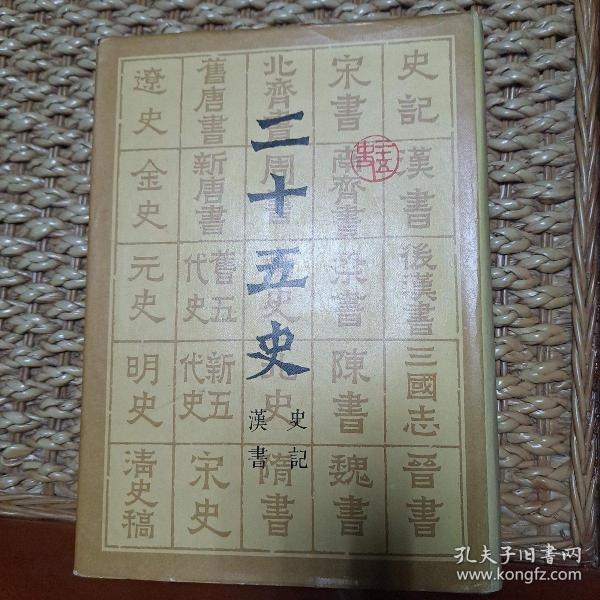 二十五史
史記
漢書
史記
漢書
後漢書
三國志
晉書
宋書
南齊書
梁書
陳書
魏書
北齊書
周書
史
史
隋書
舊唐書
新唐書
舊五代史
新五代史
宋史
遼史
金史
元史
明史
清史稿
孔夫子旧书网
www.kongfz.com